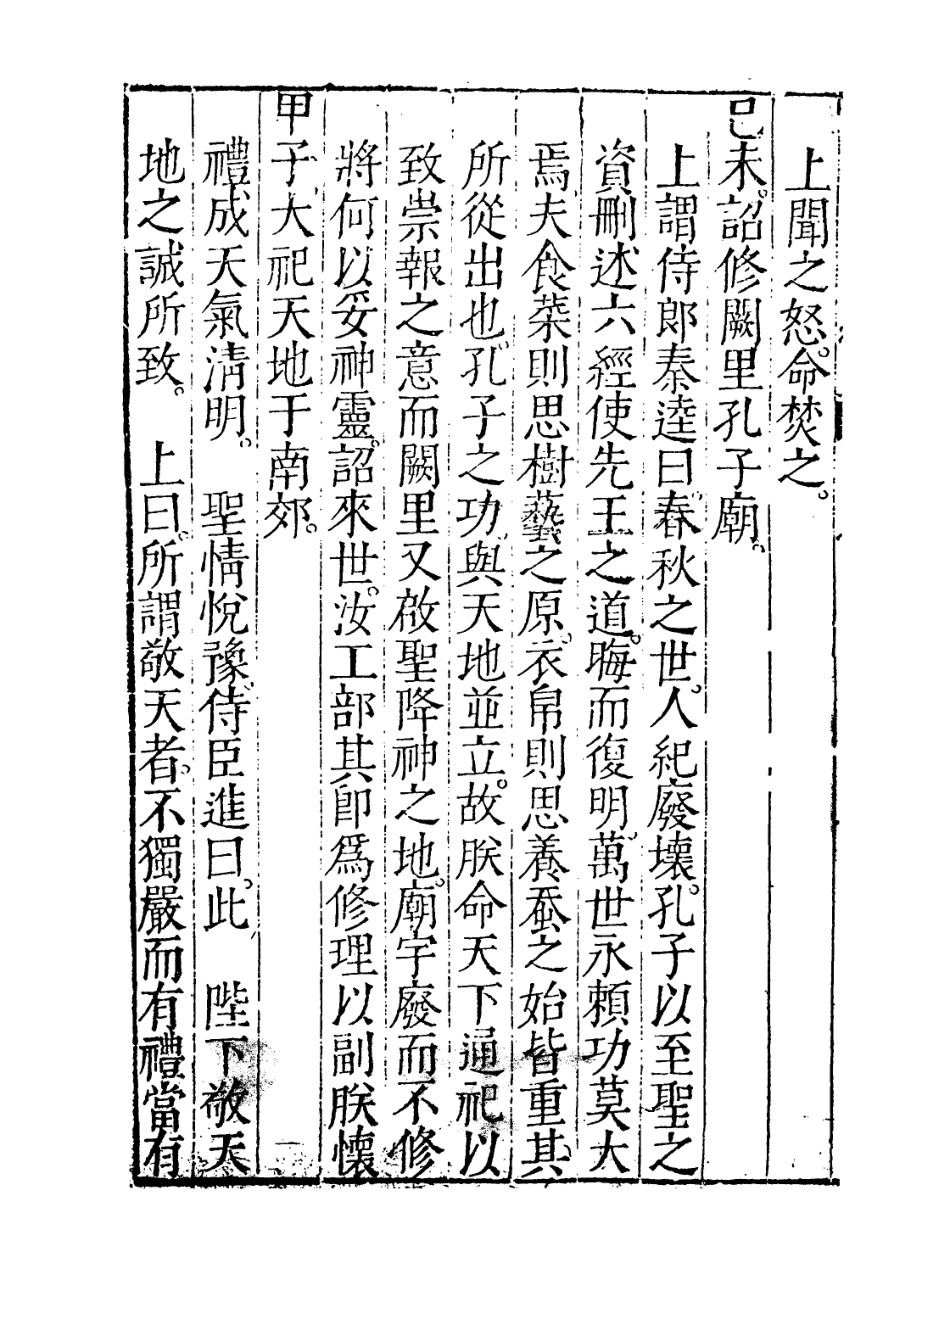 上聞之怒。命焚之。
己未。詔修闕里孔子廟。
上謂侍郎秦逵曰。春秋之世。人紀廢壞。孔子以至聖之
資刪述六經使先王之道。晦而復明。萬世永賴功莫大
焉。夫食菜則思樹藝之原。衣帛則思養蚕之始皆重其
所從出也。孔子之功。與天地並立。故朕命天下通祀以
致崇報之意而闕里又啟聖降神之地。廟宇廢而不修
將何以妥神靈。詔來世。汝工部其卽爲修理以副朕懷
甲子。大祀天地于南郊。
禮成天氣淸明。 聖情悅豫。侍臣進曰。此 陛下敬天
地之誠所致。 上曰。所謂敬天者。不獨嚴而有禮當有